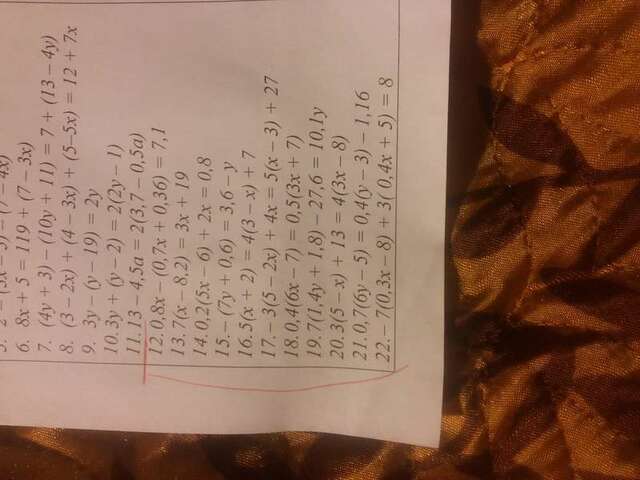 6. 8x + 5 = 119 + (7 – 3x)
7. (4y + 3) – (10y + 11) = 7 + (13 – 4y)
8. (3 – 2x) + (4 – 3x) + (5–5x) = 12 + 7x
9. 3y – (y – 19) = 2y
10.3y + (y – 2) = 2(2y – 1)
11.13 – 4,5a = 2(3,7 – 0,5a)
12.0,8x – (0,7x + 0,36) = 7,1
13.7(x – 8,2) = 3x + 19
14.0,2(5x – 6) + 2x = 0,8
15.– (7y + 0,6) = 3,6 – y
16.5(x + 2) = 4(3 – x) + 7
17.– 3(5 – 2x) + 4x = 5(x – 3) + 27
18.0,4(6x – 7) = 0,5(3x + 7)
19.7(1,4y + 1,8) – 27,6 = 10,1y
20.3(5 – x) + 13 = 4(3x – 8)
21.0,7(6y – 5) = 0,4(y – 3) – 1,16
22.– 7(0,3x – 8) + 3(0,4x + 5) = 8